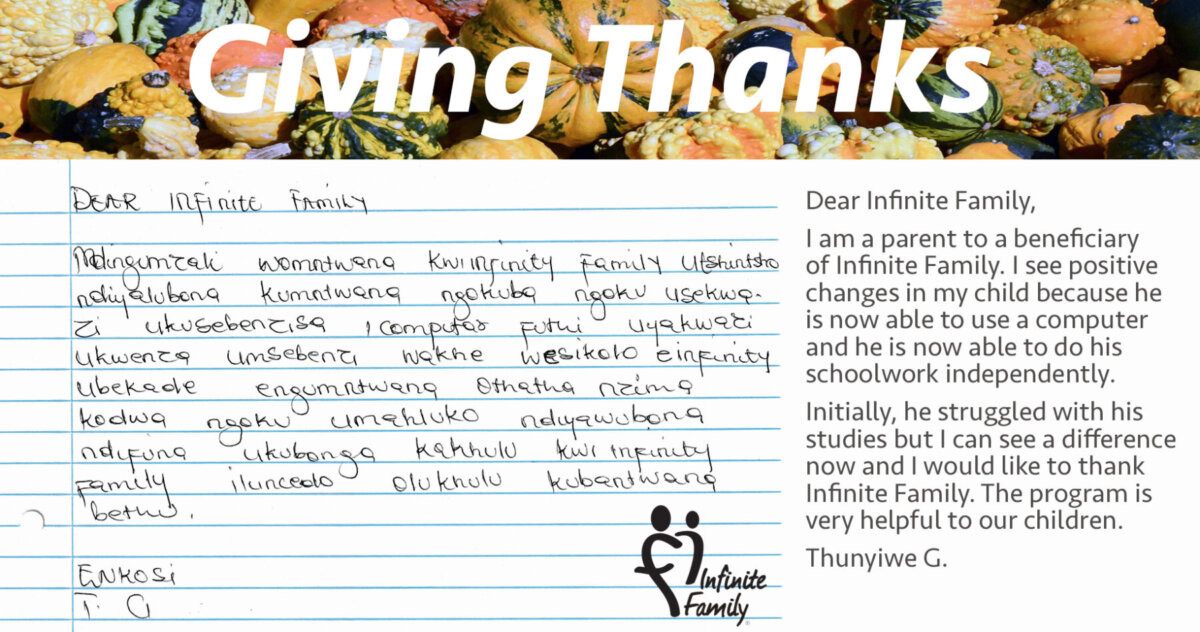 Giving Thanks
DEAR Infinite FAMILY
Ndingumzali womntwana kwiinfinity family utshintsho
ndiyalubona kumntwana ngokuba ngoku usekwa-
zi ukusebenzisa icomputer futhi uyakwazi
ukwenza umsebenzi wakhe wesikolo einfinity
ubekade engumntwana othatha nzima
kodwa ngoku umahluko ndiyawubona
ndifuna ukubonga kakhulu kwi infinity
family iluncedo olukhulu kubantwana
bethu.
ENKOSI
T. G
Infinite
Family
Dear Infinite Family,
I am a parent to a beneficiary
of Infinite Family. I see positive
changes in my child because he
is now able to use a computer
and he is now able to do his
schoolwork independently.
Initially, he struggled with his
studies but I can see a difference
now and I would like to thank
Infinite Family. The program is
very helpful to our children.
Thunyiwe G.